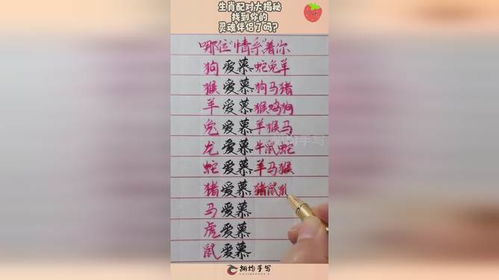 生肖配对大揭秘
找到你的
灵魂伴侣了吗?
"哪位"情系着你
狗爱慕蛇兔羊
猴爱慕狗马猪
羊爱慕猴鸡狗
兔爱慕羊猴马
龙爱慕牛鼠蛇
蛇爱慕羊马猴
猪爱慕猪鼠
马爱慕
虎爱慕
鼠爱慕
手写